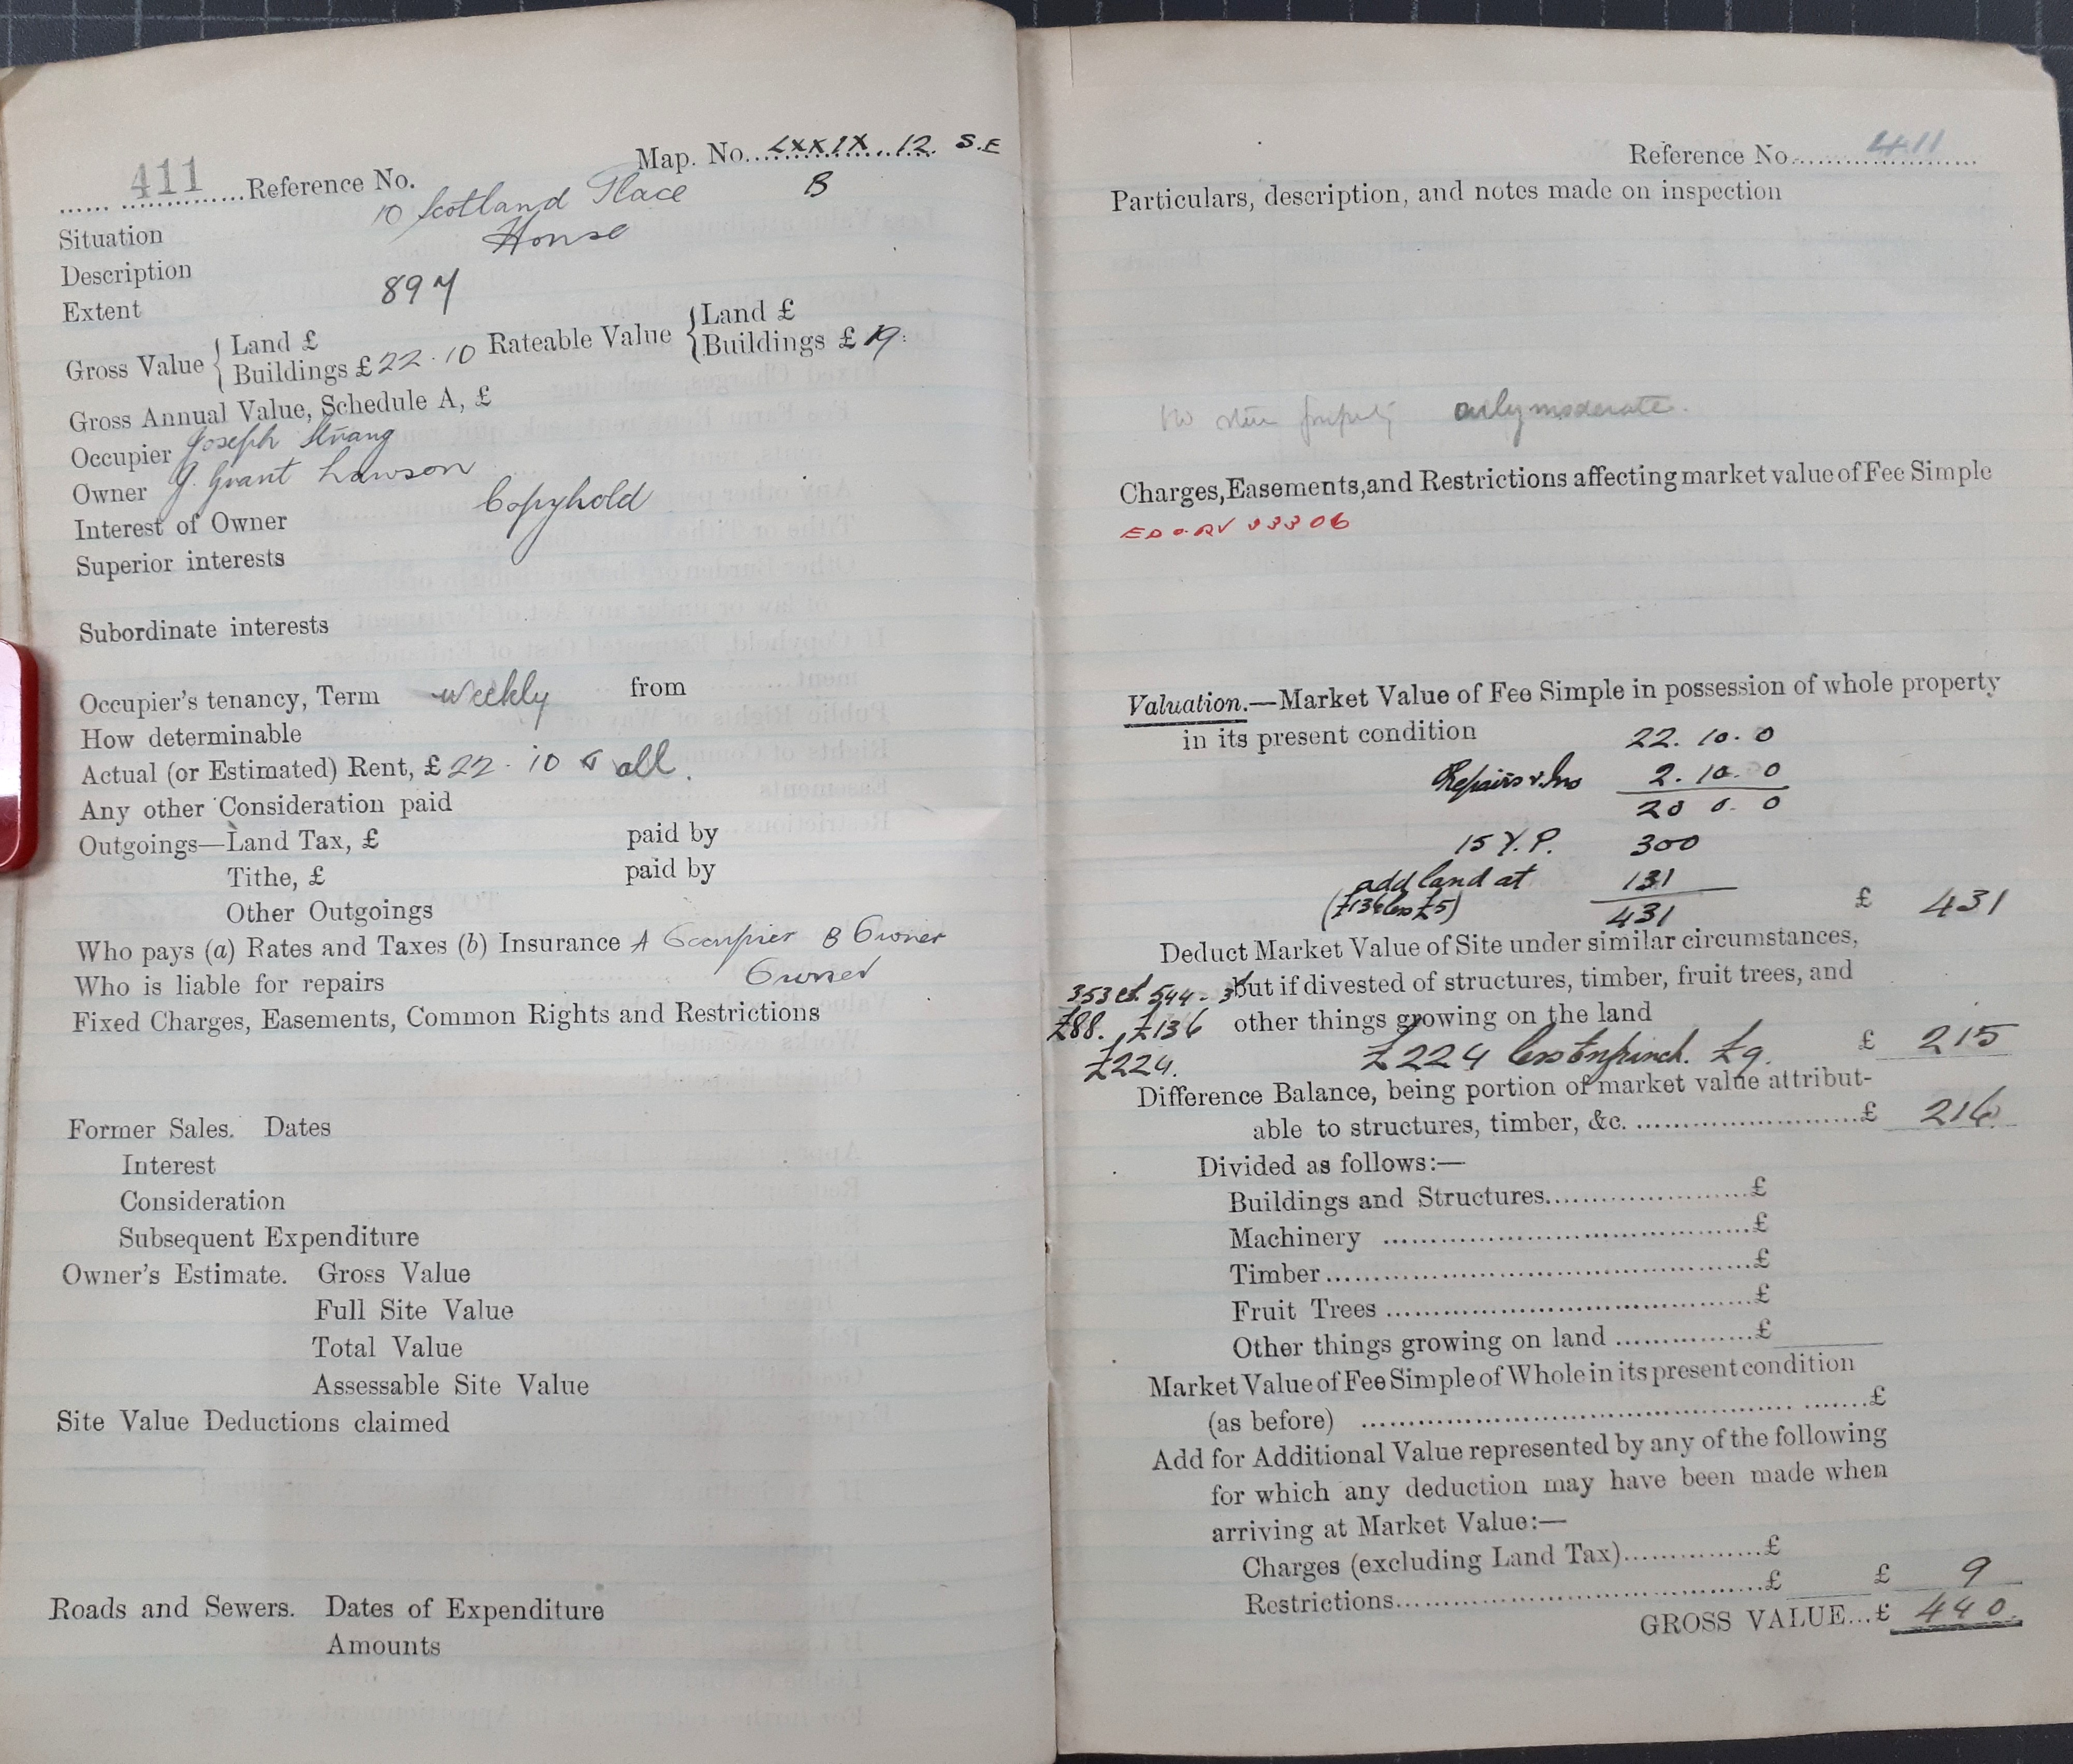 411 Reference No. Map. No. LXXIX. 12. S.E
B
Situation 10 Scotland Place
Description House
Extent 897
Gross Value { Land £
Buildings £ 22 . 10 Rateable Value { Land £
Buildings £ 19.
Gross Annual Value, Schedule A, £
Occupier Joseph Strang
Owner J. Grant Lawson
Interest of Owner Copyhold
Superior interests
Subordinate interests
Occupier's tenancy, Term weekly from
How determinable
Actual (or Estimated) Rent, £ 22 . 10 all.
Any other Consideration paid
Outgoings—Land Tax, £ paid by
Tithe, £ paid by
Other Outgoings
Who pays (a) Rates and Taxes (b) Insurance A Occupier B Owner
Who is liable for repairs Owner
Fixed Charges, Easements, Common Rights and Restrictions
Former Sales. Dates
Interest
Consideration
Subsequent Expenditure
Owner's Estimate. Gross Value
Full Site Value
Total Value
Assessable Site Value
Site Value Deductions claimed
Roads and Sewers. Dates of Expenditure
Amounts
Reference No. 411
Particulars, description, and notes made on inspection
property only moderate.
Charges, Easements, and Restrictions affecting market value of Fee Simple
33306
Valuation.—Market Value of Fee Simple in possession of whole property
in its present condition 22. 10. 0
Repairs & Ins 2. 10. 0
20 0. 0
15 Y.P. 300
add land at 131
(£136 less £5) 431 £ 431
Deduct Market Value of Site under similar circumstances,
353 @ 544 - 3 but if divested of structures, timber, fruit trees, and
£88. £136 other things growing on the land
£224. £224 less Enfranch. £9. £ 215
Difference Balance, being portion of market value attribut-
able to structures, timber, &c. £ 216
Divided as follows:—
Buildings and Structures £
Machinery £
Timber £
Fruit Trees £
Other things growing on land £
Market Value of Fee Simple of Whole in its present condition
(as before) £
Add for Additional Value represented by any of the following
for which any deduction may have been made when
arriving at Market Value:—
Charges (excluding Land Tax) £
Restrictions £ £ 9
GROSS VALUE...£ 440